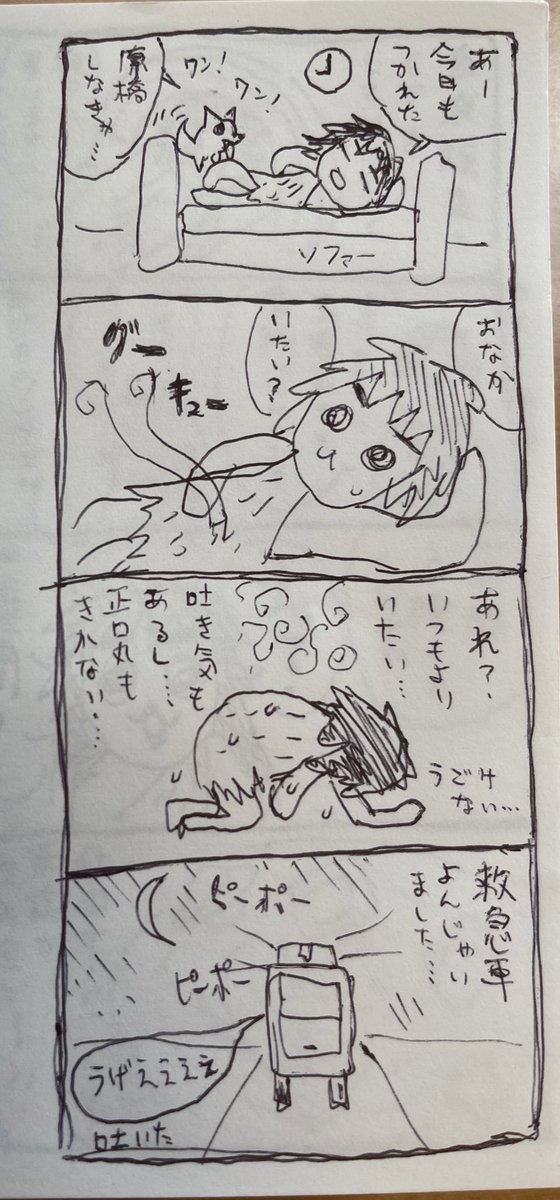 あー
今日も
つかれた
ワン!
ワン!
原橋
しなきゃ…
ソファー
おなか
いたい?
グー
キュー
あれ?
いつもより
いたい…
吐き気も
あるし…
正口丸も
きかない…
うごけ
ない…
救急車
よんじゃい
ました…
ピーポー
ピーポー
うげえええ
吐いた